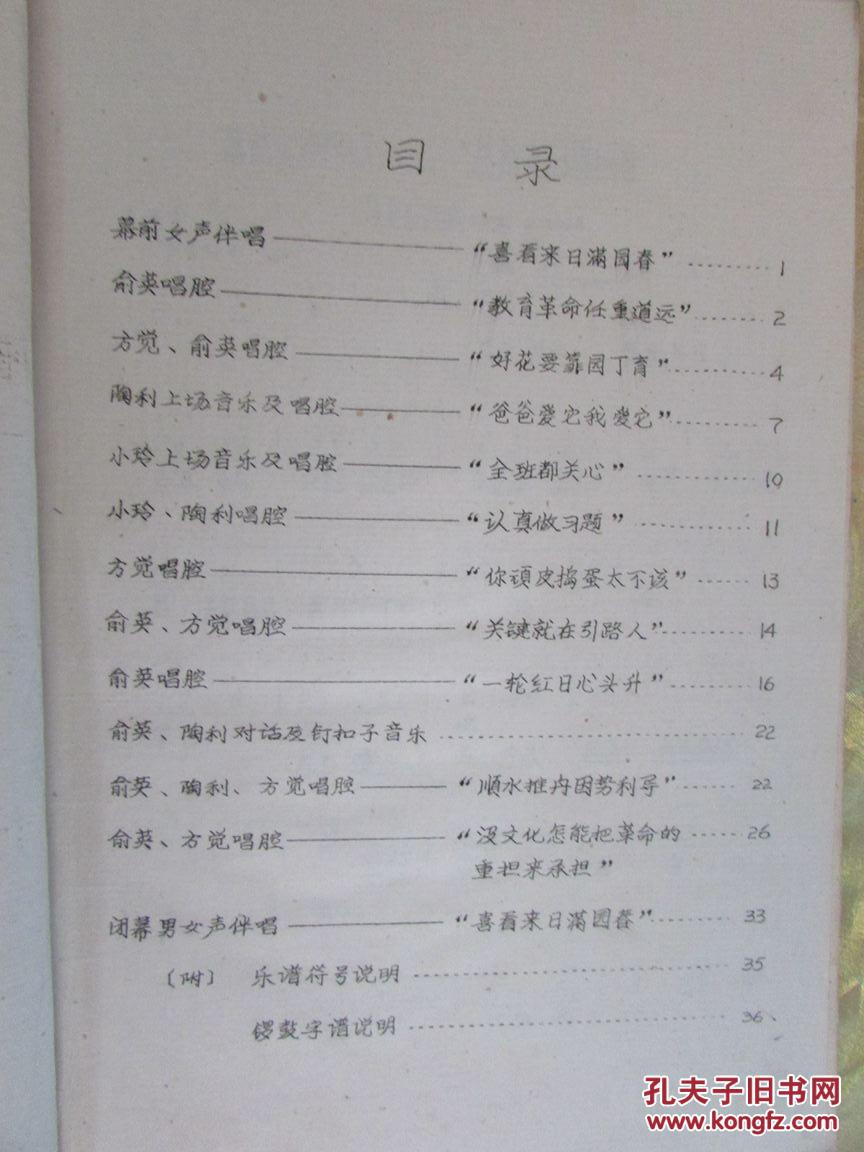 目 录
幕前女声伴唱——“喜看来日满园春”……1
俞英唱腔——“教育革命任重道远”……2
方觉、俞英唱腔——“好花要靠园丁育”……4
陶利上场音乐及唱腔——“爸爸爱它我爱它”……7
小玲上场音乐及唱腔——“全班都关心”……10
小玲、陶利唱腔——“认真做习题”……11
方觉唱腔——“你顽皮捣蛋太不该”……13
俞英、方觉唱腔——“关键就在引路人”……14
俞英唱腔——“一轮红日心头升”……16
俞英、陶利对话及钉扣子音乐……22
俞英、陶利、方觉唱腔——“顺水推舟因势利导”……22
俞英、方觉唱腔——“没文化怎能把革命的……26
重担来承担”
闭幕男女声伴唱——“喜看来日满园春”……33
〔附〕 乐谱符号说明……35
锣鼓字谱说明……36
孔夫子旧书网
www.kongfz.com